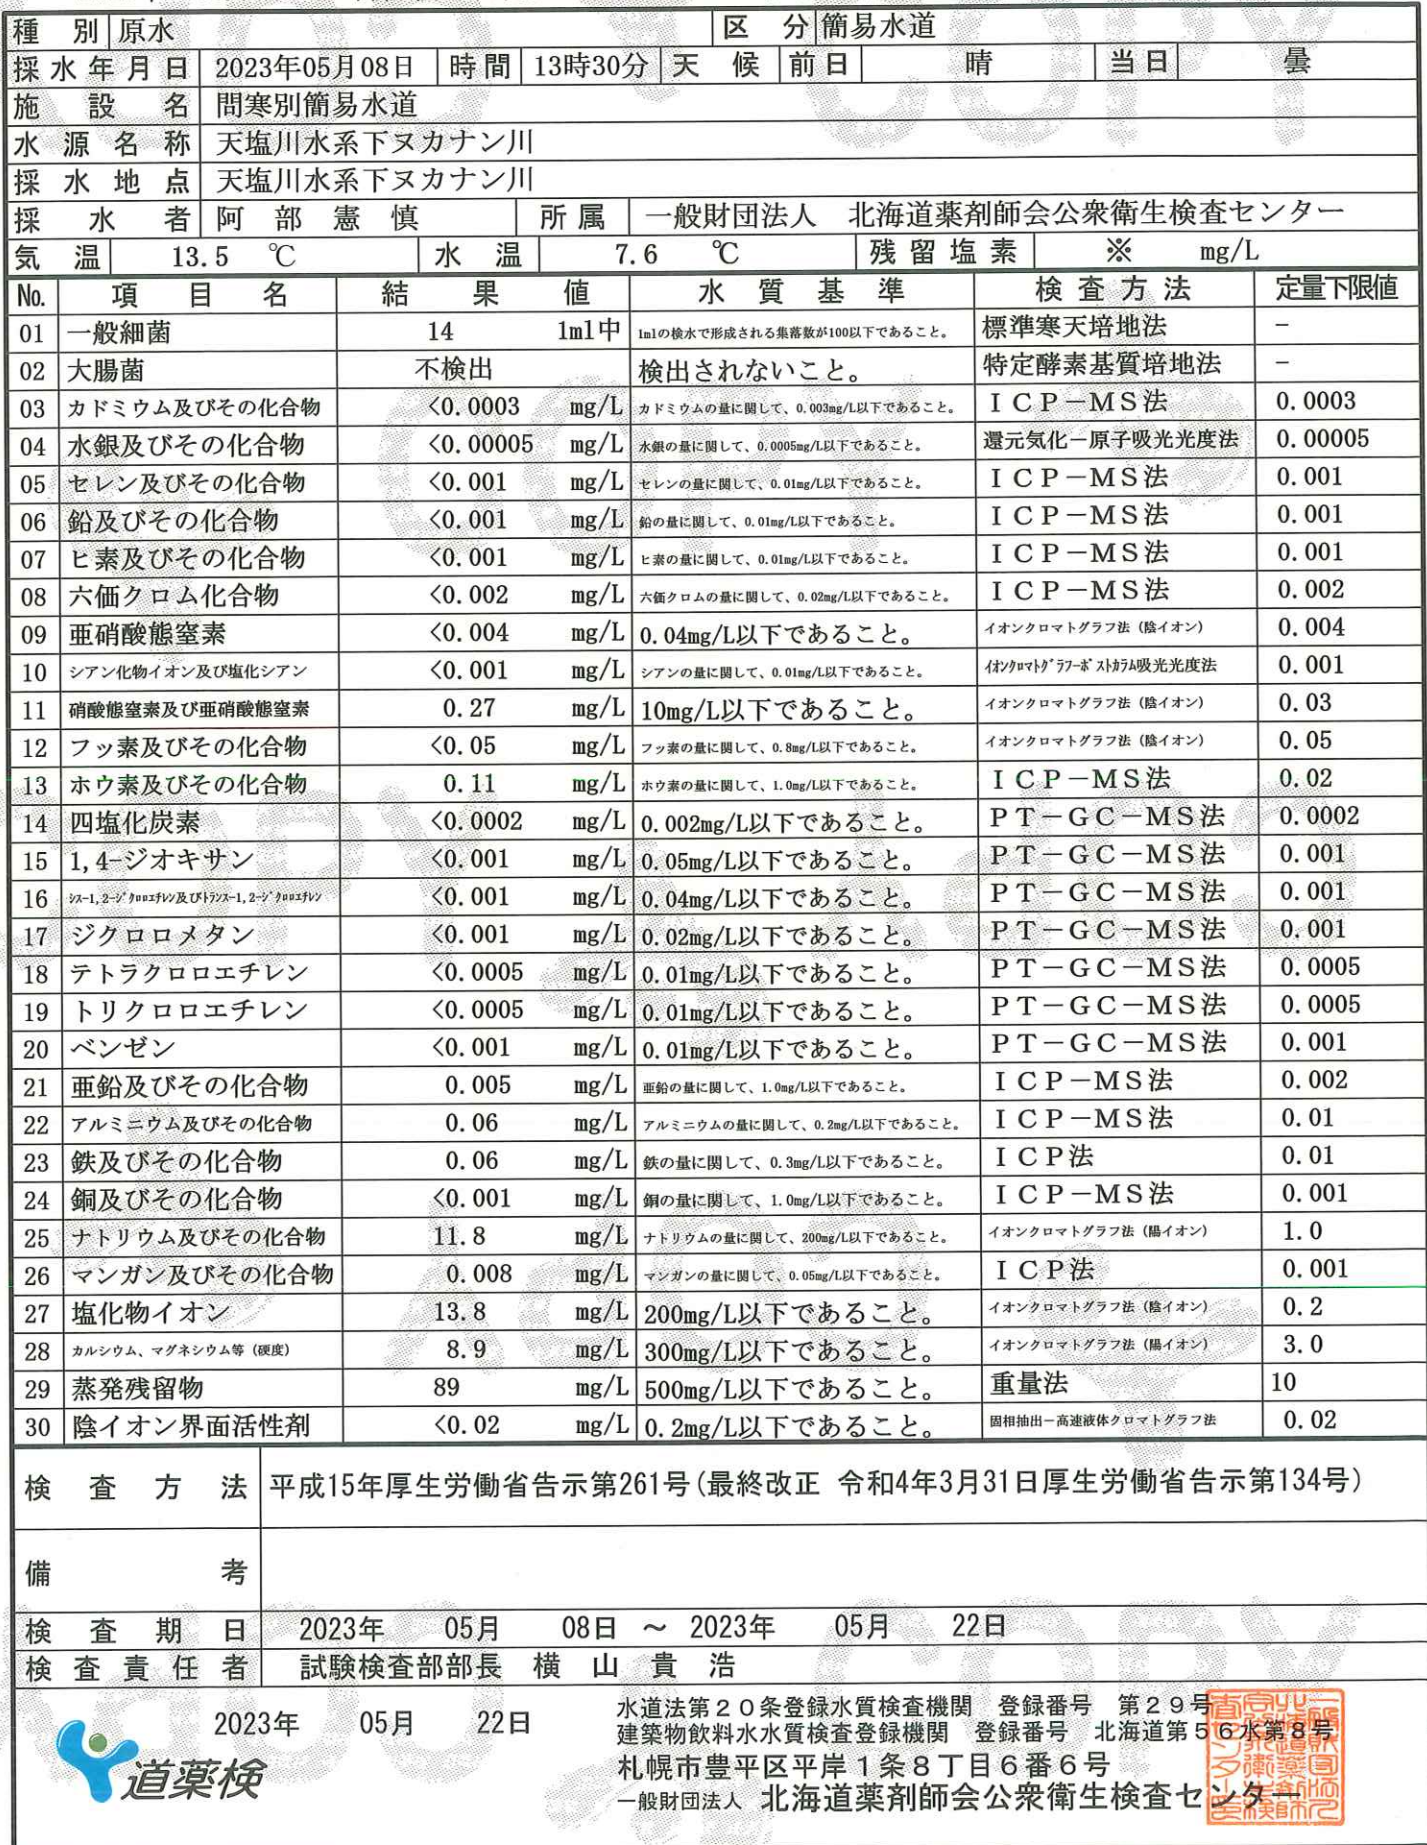 種別 原水 区分 簡易水道
採水年月日 2023年05月08日 時間 13時30分 天候 前日 晴 当日 曇
施設名 問寒別簡易水道
水源名称 天塩川水系下ヌカナン川
採水地点 天塩川水系下ヌカナン川
採水者 阿部憲慎 所属 一般財団法人 北海道薬剤師会公衆衛生検査センター
気温 13.5 ℃ 水温 7.6 ℃ 残留塩素 ※ mg/L
No. 項目名 結果値 水質基準 検査方法 定量下限値
01 一般細菌 14 1ml中 1mlの検水で形成される集落数が100以下であること。 標準寒天培地法 －
02 大腸菌 不検出 検出されないこと。 特定酵素基質培地法 －
03 カドミウム及びその化合物 <0.0003 mg/L カドミウムの量に関して、0.003mg/L以下であること。 ICP－MS法 0.0003
04 水銀及びその化合物 <0.00005 mg/L 水銀の量に関して、0.0005mg/L以下であること。 還元気化－原子吸光光度法 0.00005
05 セレン及びその化合物 <0.001 mg/L セレンの量に関して、0.01mg/L以下であること。 ICP－MS法 0.001
06 鉛及びその化合物 <0.001 mg/L 鉛の量に関して、0.01mg/L以下であること。 ICP－MS法 0.001
07 ヒ素及びその化合物 <0.001 mg/L ヒ素の量に関して、0.01mg/L以下であること。 ICP－MS法 0.001
08 六価クロム化合物 <0.002 mg/L 六価クロムの量に関して、0.02mg/L以下であること。 ICP－MS法 0.002
09 亜硝酸態窒素 <0.004 mg/L 0.04mg/L以下であること。 イオンクロマトグラフ法（陰イオン） 0.004
10 シアン化物イオン及び塩化シアン <0.001 mg/L シアンの量に関して、0.01mg/L以下であること。 ｲｵﾝｸﾛﾏﾄｸﾞﾗﾌｰﾎﾟｽﾄｶﾗﾑ吸光光度法 0.001
11 硝酸態窒素及び亜硝酸態窒素 0.27 mg/L 10mg/L以下であること。 イオンクロマトグラフ法（陰イオン） 0.03
12 フッ素及びその化合物 <0.05 mg/L フッ素の量に関して、0.8mg/L以下であること。 イオンクロマトグラフ法（陰イオン） 0.05
13 ホウ素及びその化合物 0.11 mg/L ホウ素の量に関して、1.0mg/L以下であること。 ICP－MS法 0.02
14 四塩化炭素 <0.0002 mg/L 0.002mg/L以下であること。 PT－GC－MS法 0.0002
15 1,4-ジオキサン <0.001 mg/L 0.05mg/L以下であること。 PT－GC－MS法 0.001
16 ｼｽ-1,2-ｼﾞｸﾛﾛｴﾁﾚﾝ及びﾄﾗﾝｽ-1,2-ｼﾞｸﾛﾛｴﾁﾚﾝ <0.001 mg/L 0.04mg/L以下であること。 PT－GC－MS法 0.001
17 ジクロロメタン <0.001 mg/L 0.02mg/L以下であること。 PT－GC－MS法 0.001
18 テトラクロロエチレン <0.0005 mg/L 0.01mg/L以下であること。 PT－GC－MS法 0.0005
19 トリクロロエチレン <0.0005 mg/L 0.01mg/L以下であること。 PT－GC－MS法 0.0005
20 ベンゼン <0.001 mg/L 0.01mg/L以下であること。 PT－GC－MS法 0.001
21 亜鉛及びその化合物 0.005 mg/L 亜鉛の量に関して、1.0mg/L以下であること。 ICP－MS法 0.002
22 アルミニウム及びその化合物 0.06 mg/L アルミニウムの量に関して、0.2mg/L以下であること。 ICP－MS法 0.01
23 鉄及びその化合物 0.06 mg/L 鉄の量に関して、0.3mg/L以下であること。 ICP法 0.01
24 銅及びその化合物 <0.001 mg/L 銅の量に関して、1.0mg/L以下であること。 ICP－MS法 0.001
25 ナトリウム及びその化合物 11.8 mg/L ナトリウムの量に関して、200mg/L以下であること。 イオンクロマトグラフ法（陽イオン） 1.0
26 マンガン及びその化合物 0.008 mg/L マンガンの量に関して、0.05mg/L以下であること。 ICP法 0.001
27 塩化物イオン 13.8 mg/L 200mg/L以下であること。 イオンクロマトグラフ法（陰イオン） 0.2
28 カルシウム、マグネシウム等（硬度） 8.9 mg/L 300mg/L以下であること。 イオンクロマトグラフ法（陽イオン） 3.0
29 蒸発残留物 89 mg/L 500mg/L以下であること。 重量法 10
30 陰イオン界面活性剤 <0.02 mg/L 0.2mg/L以下であること。 固相抽出－高速液体クロマトグラフ法 0.02
検査方法 平成15年厚生労働省告示第261号(最終改正 令和4年3月31日厚生労働省告示第134号)
備考
検査期日 2023年 05月 08日 ～ 2023年 05月 22日
検査責任者 試験検査部部長 横山貴浩
2023年 05月 22日
水道法第20条登録水質検査機関 登録番号 第29号
建築物飲料水水質検査登録機関 登録番号 北海道第56水第8号
道薬検
札幌市豊平区平岸1条8丁目6番6号
一般財団法人 北海道薬剤師会公衆衛生検査センター